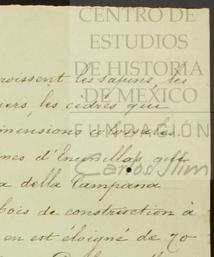 CENTRO DE
ESTUDIOS
DE HISTORIA
DE MÉXICO
FUNDACIÓN
Carlos Slim
croissent les sapins, les
les cèdres que
dimensions colossales.
d'Encinillas que
della Campana
bois de construction à
en est éloigné de 70